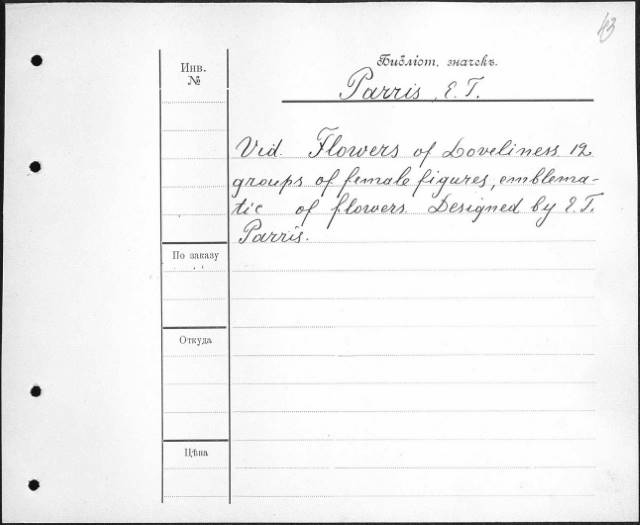 43
Инв.
№
Библіот. значекъ.
Parris, E. T.
Vid. Flowers of Loveliness 12
groups of female figures, emblema-
tic of flowers. Designed by E. T.
Parris.
По заказу
Откуда
Цѣна